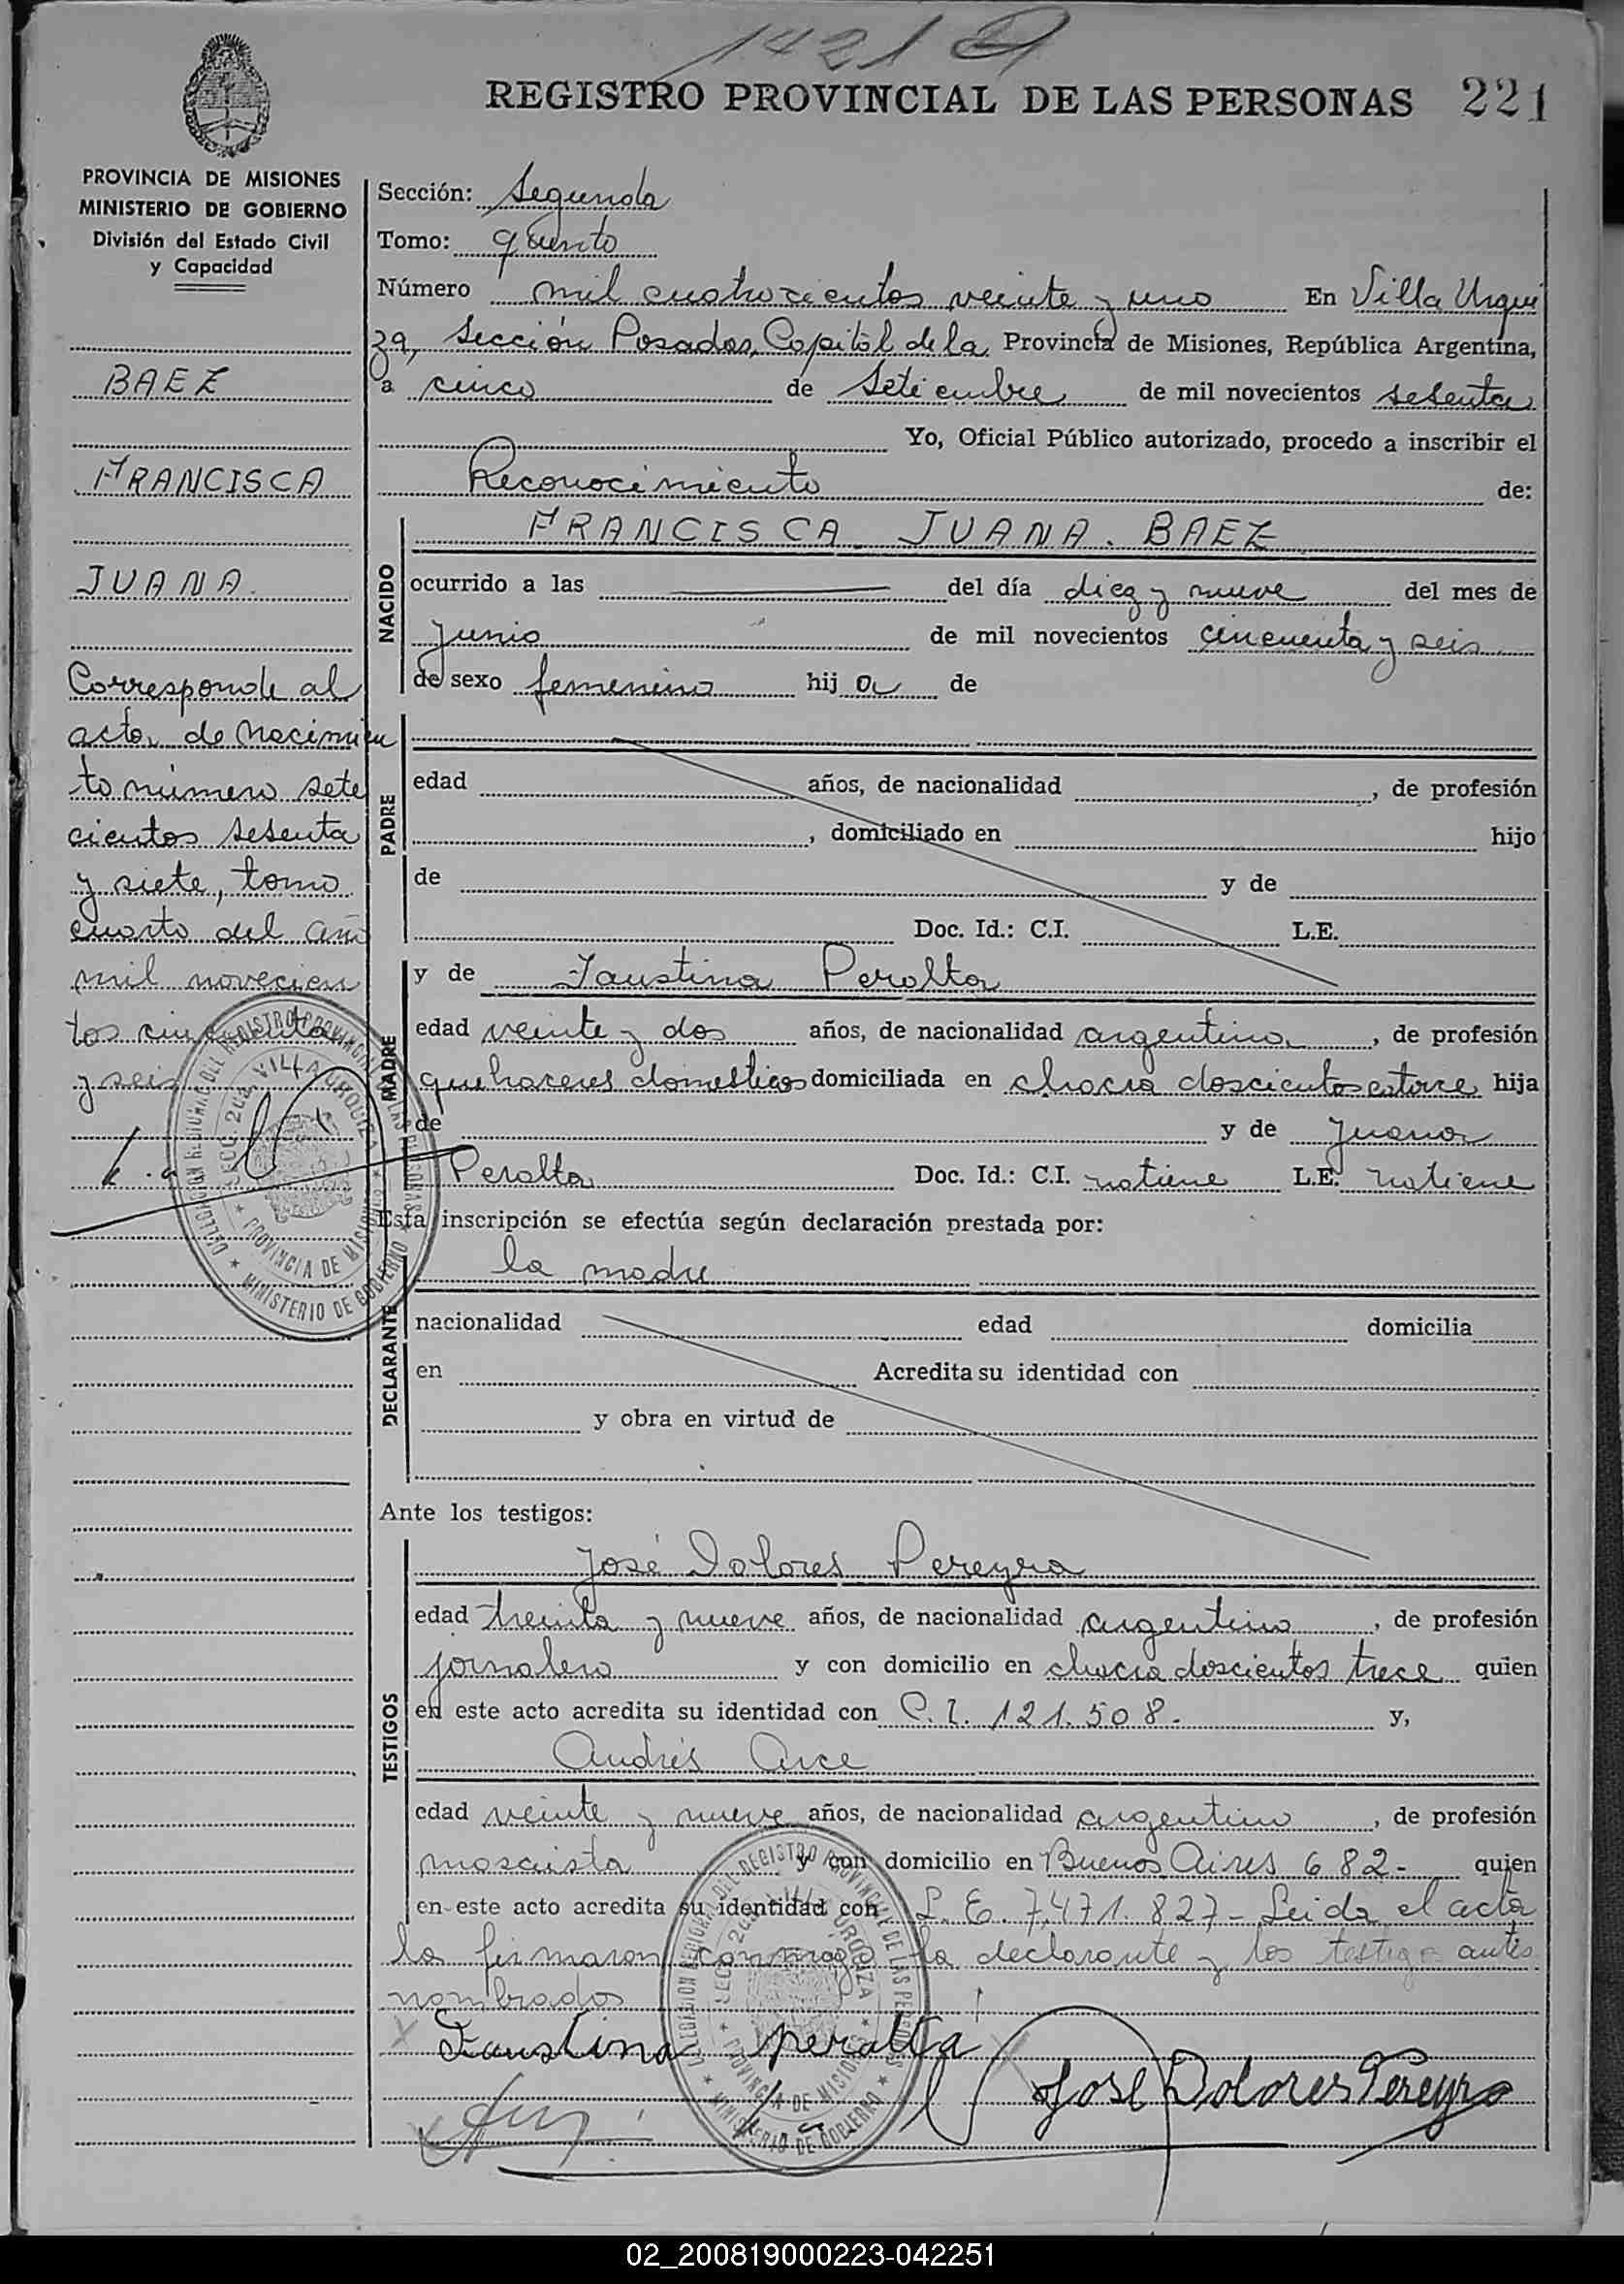 1421
REGISTRO PROVINCIAL DE LAS PERSONAS 221
PROVINCIA DE MISIONES
MINISTERIO DE GOBIERNO
División del Estado Civil
y Capacidad
BAEZ
FRANCISCA
JUANA.
Corresponde al
acta de Nacimien
to número sete
cientos sesenta
y siete, tomo
cuarto del año
mil novecien
tos cincuenta
y seis
Sección: Segunda
Tomo: quinto
Número mil cuatrocientos veinte y uno En Villa Urqui
za, Sección Posadas, Capital de la Provincia de Misiones, República Argentina,
a cinco de Setiembre de mil novecientos sesenta
Yo, Oficial Público autorizado, procedo a inscribir el
Reconocimiento de:
NACIDO
FRANCISCA JUANA. BAEZ
ocurrido a las del día diez y nueve del mes de
Junio de mil novecientos cincuenta y seis
de sexo femenino hija de
PADRE
edad años, de nacionalidad , de profesión
, domiciliado en hijo
de y de
Doc. Id.: C.I. L.E.
MADRE
y de Faustina Peralta
edad veinte y dos años, de nacionalidad argentina, de profesión
quehaceres domesticos domiciliada en chacra doscientos catorce hija
de y de Juana
Peralta Doc. Id.: C.I. no tiene L.E. no tiene
Esta inscripción se efectúa según declaración prestada por:
DECLARANTE
la madre
nacionalidad edad domicilia
en Acredita su identidad con
y obra en virtud de
Ante los testigos:
TESTIGOS
José Dolores Pereyra
edad treinta y nueve años, de nacionalidad argentino, de profesión
jornalero y con domicilio en chacra doscientos trece quien
en este acto acredita su identidad con C.I. 121.508.- y,
Andrés Arce
edad veinte y nueve años, de nacionalidad argentino, de profesión
mosaista y con domicilio en Buenos Aires 682- quien
en este acto acredita su identidad con L.E. 7.471.827- Leida el acta
la firmaron conmigo la declarante y los testigos antes
nombrados
Faustina peralta
Jose Dolores Pereyra
DELEGACION REGIONAL DEL REGISTRO PROVINCIAL DE LAS PERSONAS
SECC. 2da. VILLA URQUIZA
PROVINCIA DE MISIONES
MINISTERIO DE GOBIERNO
DELEGACION REGIONAL DEL REGISTRO PROVINCIAL DE LAS PERSONAS
SECC. 2da. VILLA URQUIZA
PROVINCIA DE MISIONES
MINISTERIO DE GOBIERNO
02_200819000223-042251